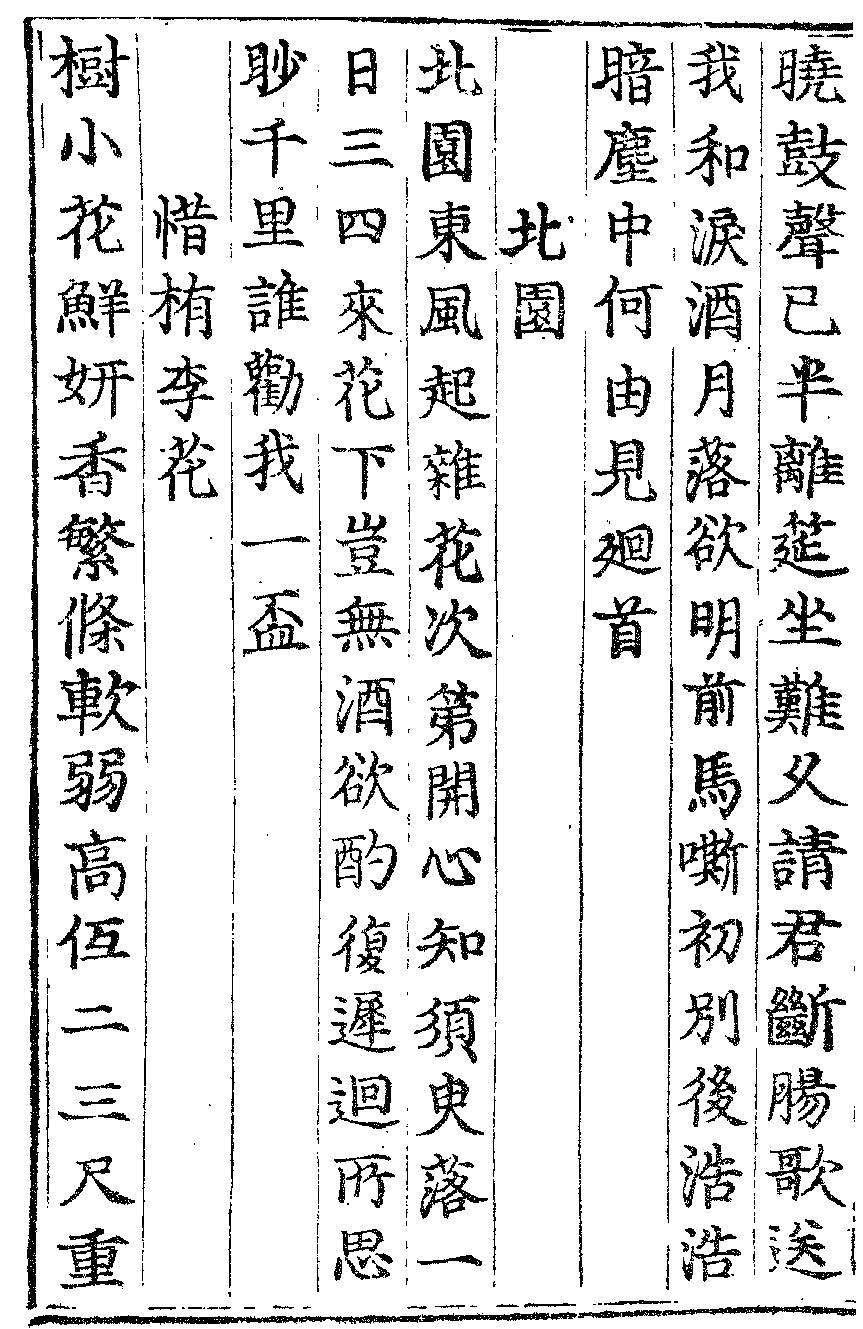 曉鼓聲已半離筵坐難久請君斷腸歌送
我和淚酒月落欲明前馬嘶初別後浩浩
暗塵中何由見廻首
北園
北園東風起雜花次第開心知須臾落一
日三四來花下豈無酒欲酌復遲迴所思
眇千里誰勸我一盃
惜栯李花
樹小花鮮妍香繁條軟弱高低二三尺重